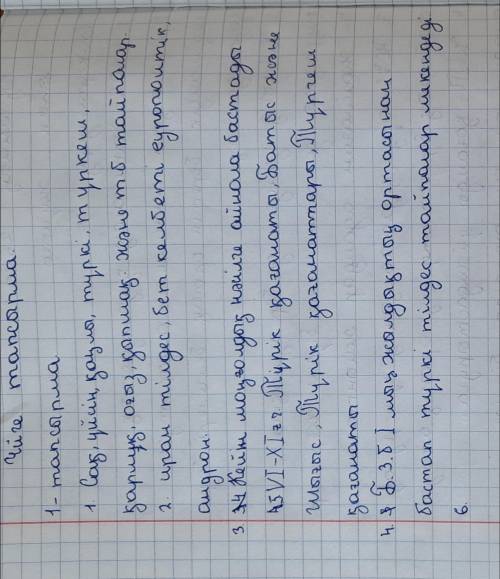 Үйге тапсырма.
1-тапсырма
1. Сақ, үйсін, қаңлы, түркі, түркеш,
қарлұқ, оғыз, қыпшақ және т.б тайпалар.
2. иран тілдес, бет келбеті еуропоитік,
андрон.
3. Кейін маңғолдық нәсілге айнала бастады
5 VI-XI ғғ. Түрік қағанаты, Батыс және
Шығыс, Түрік қағанаттары, Түргеш
қағанаты
4. Б.З.Б I мың жылдықтың ортасынан
бастап түркі тілдес тайпалар мекендеді
6.